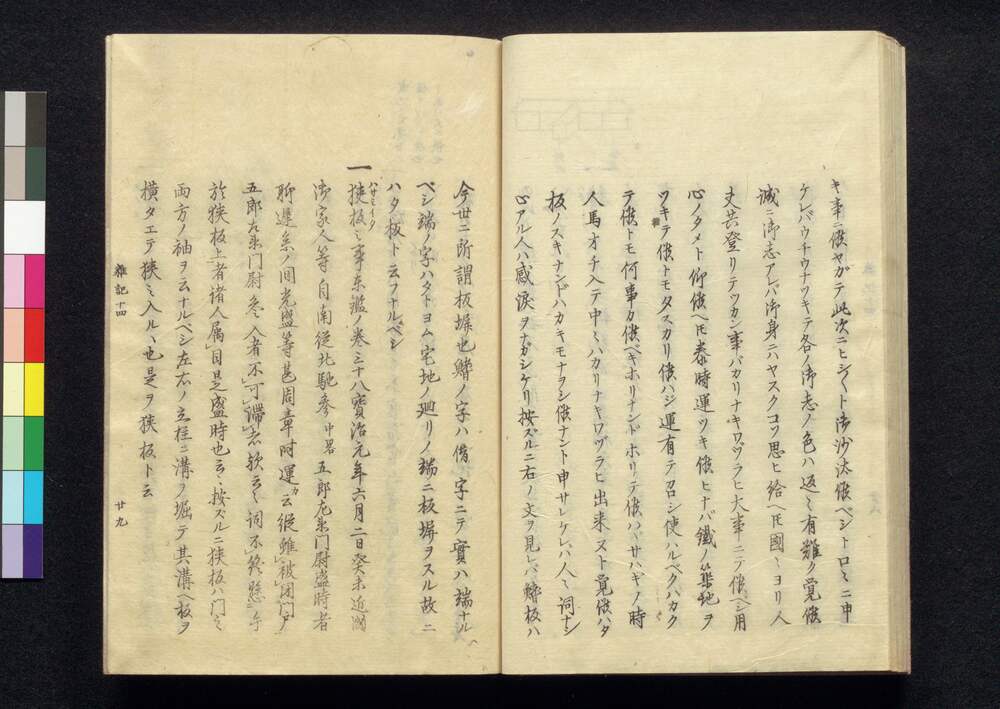 キ事ニ候ヤガテ此次ニヒシ〳〵ト御沙汰候ベシト口々ニ申
ケレバウチウナツキテ各ノ御志ノ色ハ返々有難ク覚候
誠ニ御志アレバ御身ニハヤスクコソ思ヒ給ヘ𪜈國々ヨリ人
丈共登リテツカン事バカリナキワヅラヒ大事ニテ候ヘシ用
心ノタメト仰候ヘ𪜈泰時運ツキ候ヒナバ鐵ノ築地ヲ
ツキテ候トモタスカリ候ハジ運有テ召シ使ハルベクハカク
テ候トモ何事カ候ベキホリナンドホリテ候ハヾサハギノ時
人馬オチ入テ中々ハカリナキワヅラヒ出来ヌト覚候ハタ
板ノスキナンドハカキモナヲシ候ナント申サレケレハ人々詞ナシ
心アル人ハ感涙ヲナガシケリ按ズルニ右ノ文ヲ見レバ鰭板ハ
今世ニ所謂板塀也鰭ノ字ハ借字ニテ實ハ端ナル
ベシ端ノ字ハタトヨム宅地ノ廻リノ端ニ板塀ヲスル故ニ
ハタ板ト云フナルベシ
一 狭板ミ事東鑑ノ巻三十八寳治元年六月二日癸未近國
ハサミイタ
御家人等自南從北馳参中畧五郎左衛門尉盛時者
聊遅参ノ間光盛等甚周章時運カ云縦雖被閉門戸
五郎左衛門尉参入者不可滞者歟云々詞不終懸手
於狭板上者諸人属目是盛時也云々按ズルニ狭板ハ門ミ
両方ノ袖ヲ云ナルベシ左右ノ立柱ニ溝ヲ堀テ其溝ヘ板ヲ
横タエテ狭ミ入ルヽ也是ヲ狭板ト云
雑記十四
廿九